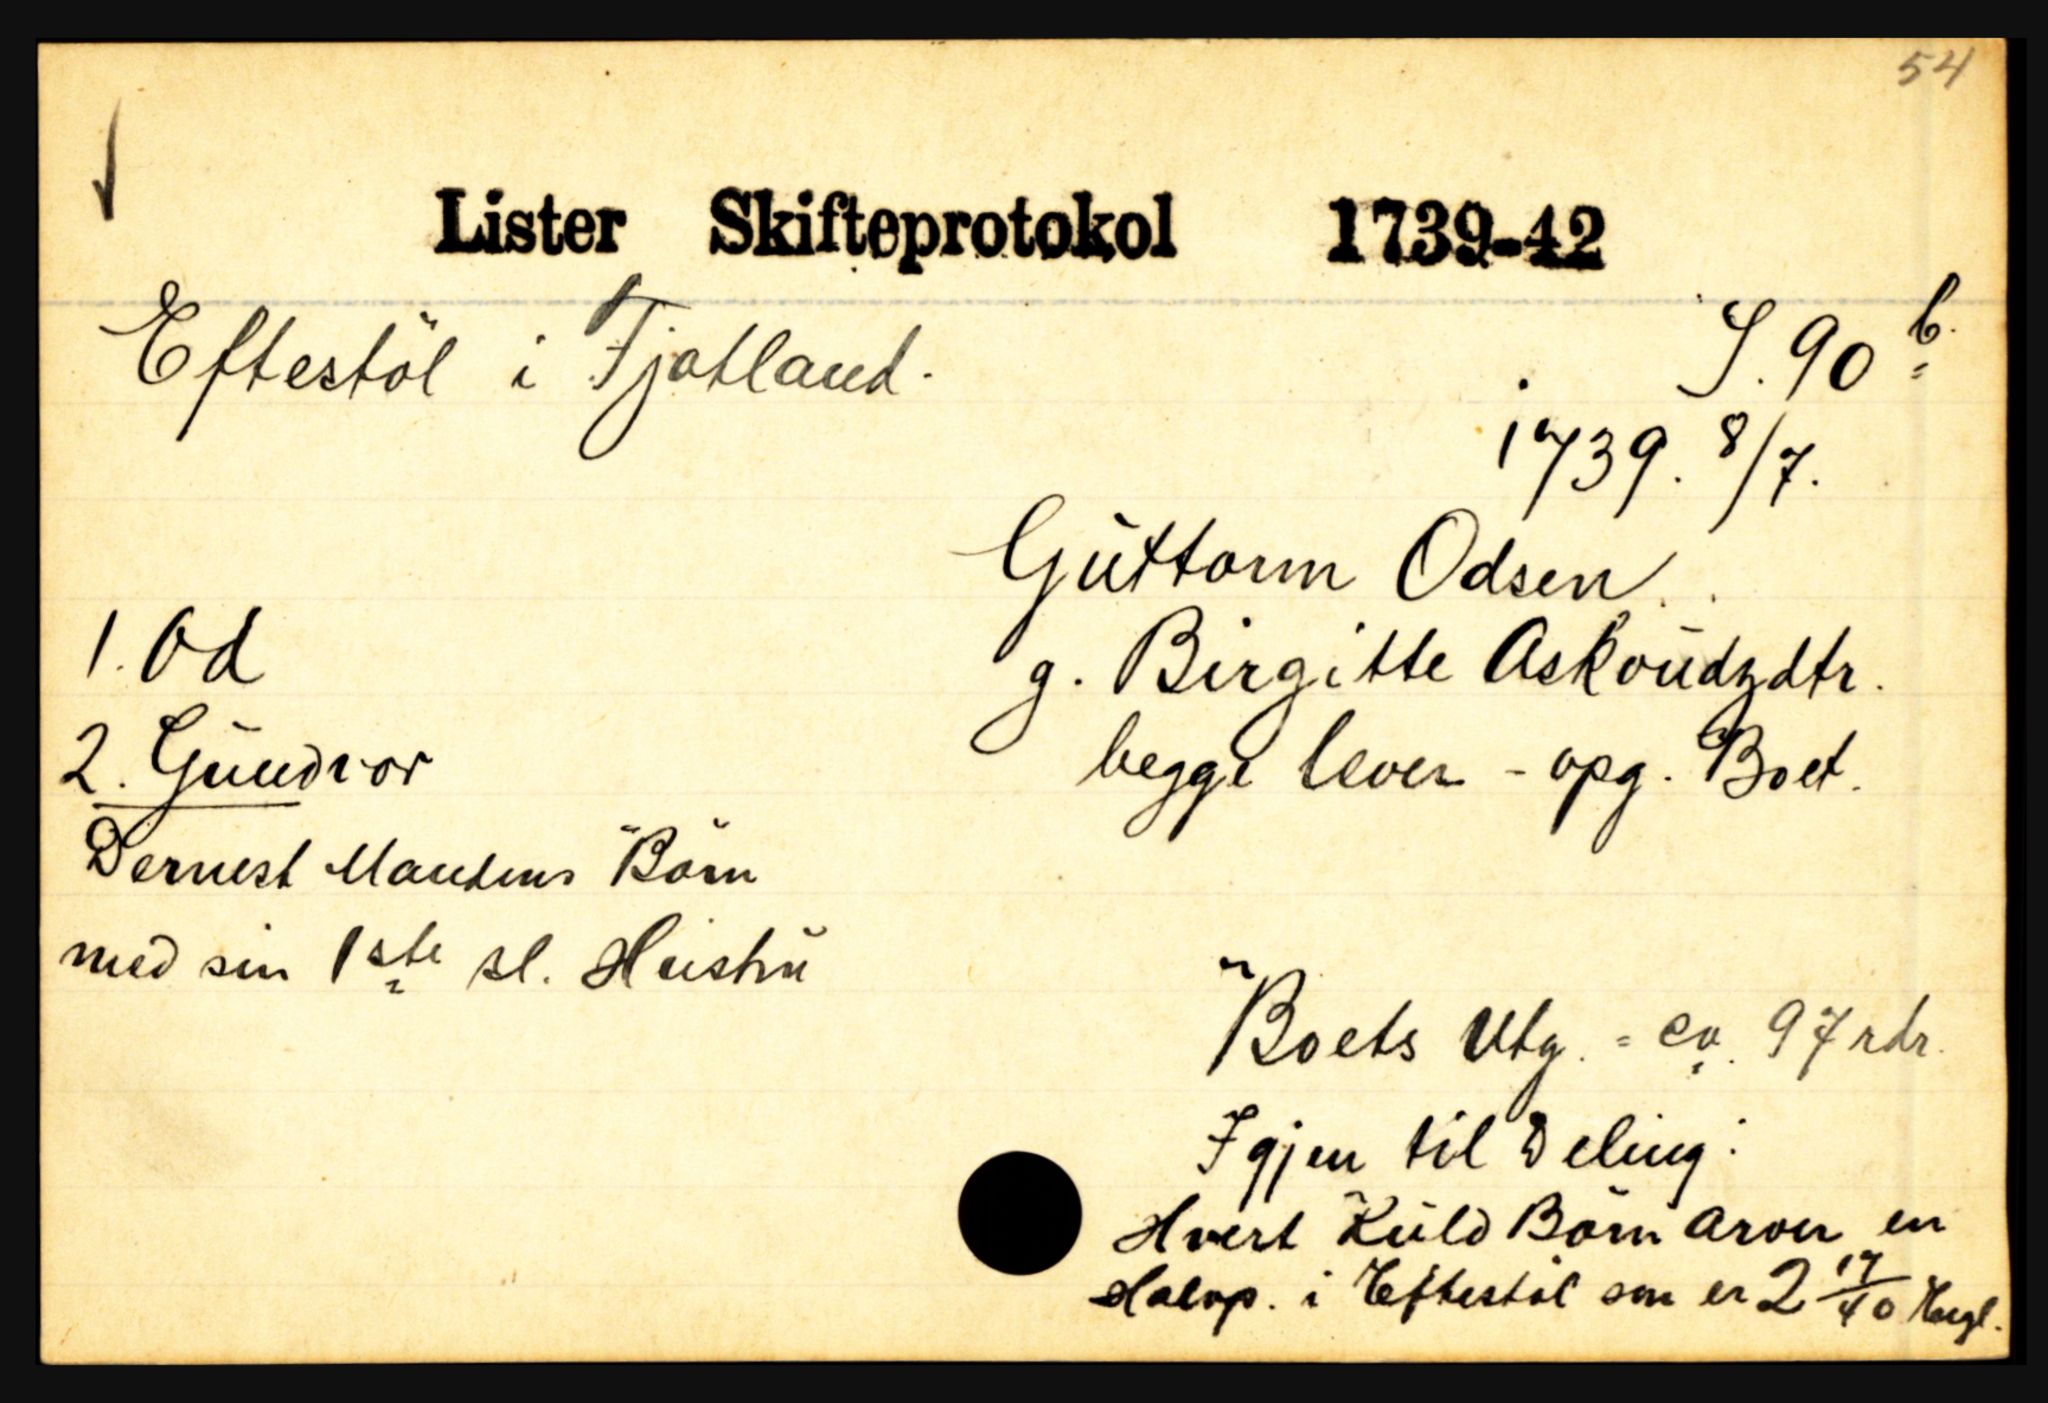 54
Lister Skifteprotokol 1739-42
Eftestöl i Fjotland.
S. 90 b.
1739. 8/7.
Guttorm Odsen.
g. Birgitte Askoudzdtr.
begge lever - opg. Boet.
1. Od
2. Gundvor
Dernest Mandens Börn
med sin 1ste sl. Hustru
Boets Utg. = ca. 97 rdr.
Igjen til Deling:
Hvert Kuld Börn arver en
Halvp. i Eftestöl som er 2 17/40 Engl.